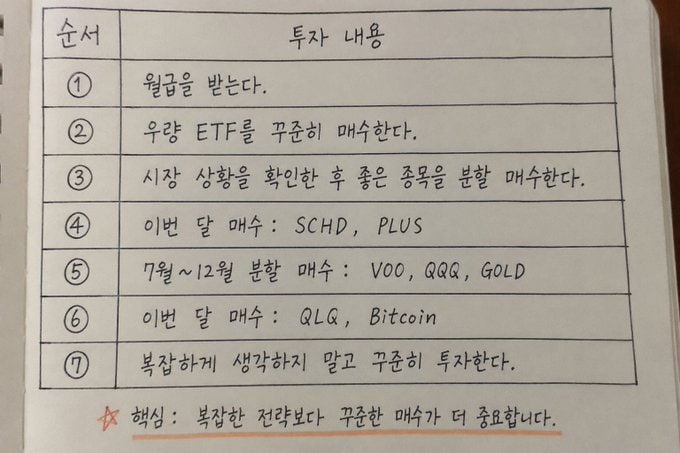 순서 투자 내용
① 월급을 받는다.
② 우량 ETF를 꾸준히 매수한다.
③ 시장 상황을 확인한 후 좋은 종목을 분할 매수한다.
④ 이번 달 매수 : SCHD, PLUS
⑤ 7월~12월 분할 매수 : VOO, QQQ, GOLD
⑥ 이번 달 매수 : QLQ, Bitcoin
⑦ 복잡하게 생각하지 말고 꾸준히 투자한다.
☆ 핵심 : 복잡한 전략보다 꾸준한 매수가 더 중요합니다.